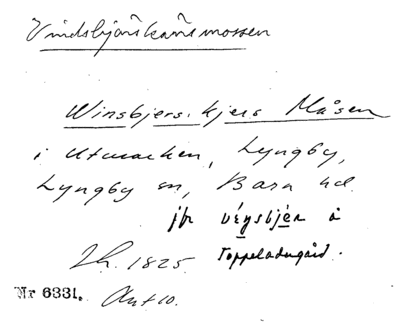 Vindsbjärskärsmossen
Winsbjers-kjers Måsen
i Utmarken, Lyngby,
Lyngby sn, Bara hd.
jfr véngsbjér å
Toppeladugård.
Lh. 1825.
Nr 6331. Akt 10.